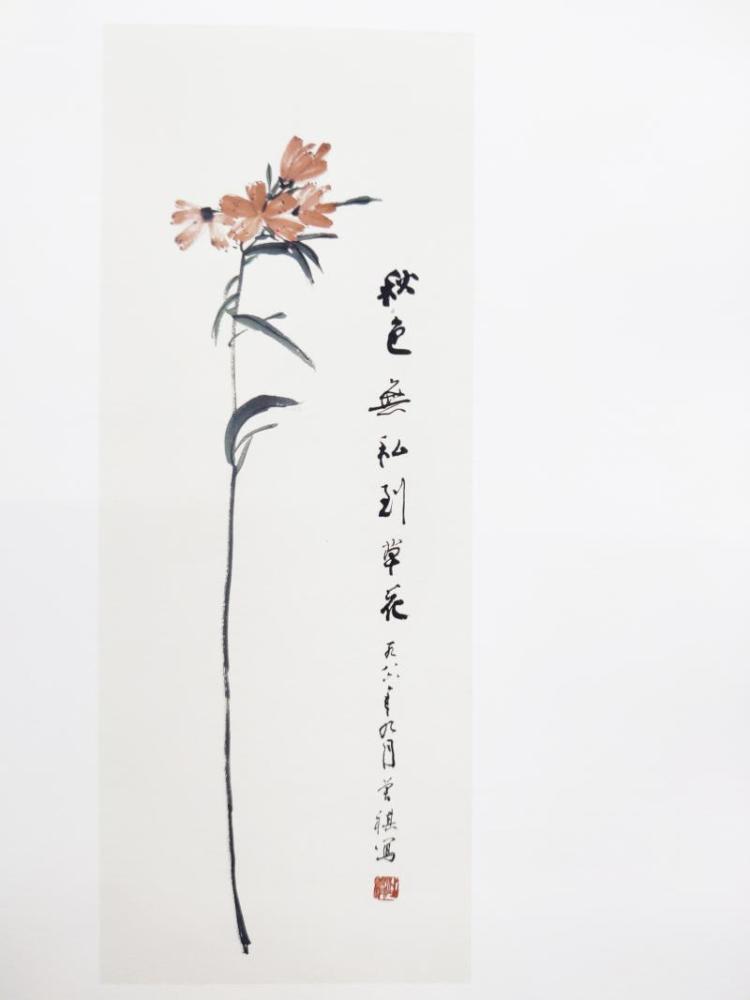 秋色無私到草花
一九八六年九月曾祺寫